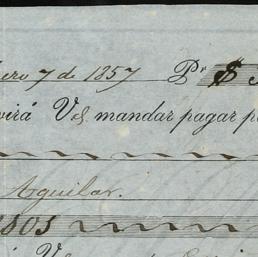 ero 7 de 1857 Pr $
virá Vd. mandar pagar p
Aguilar.
1803